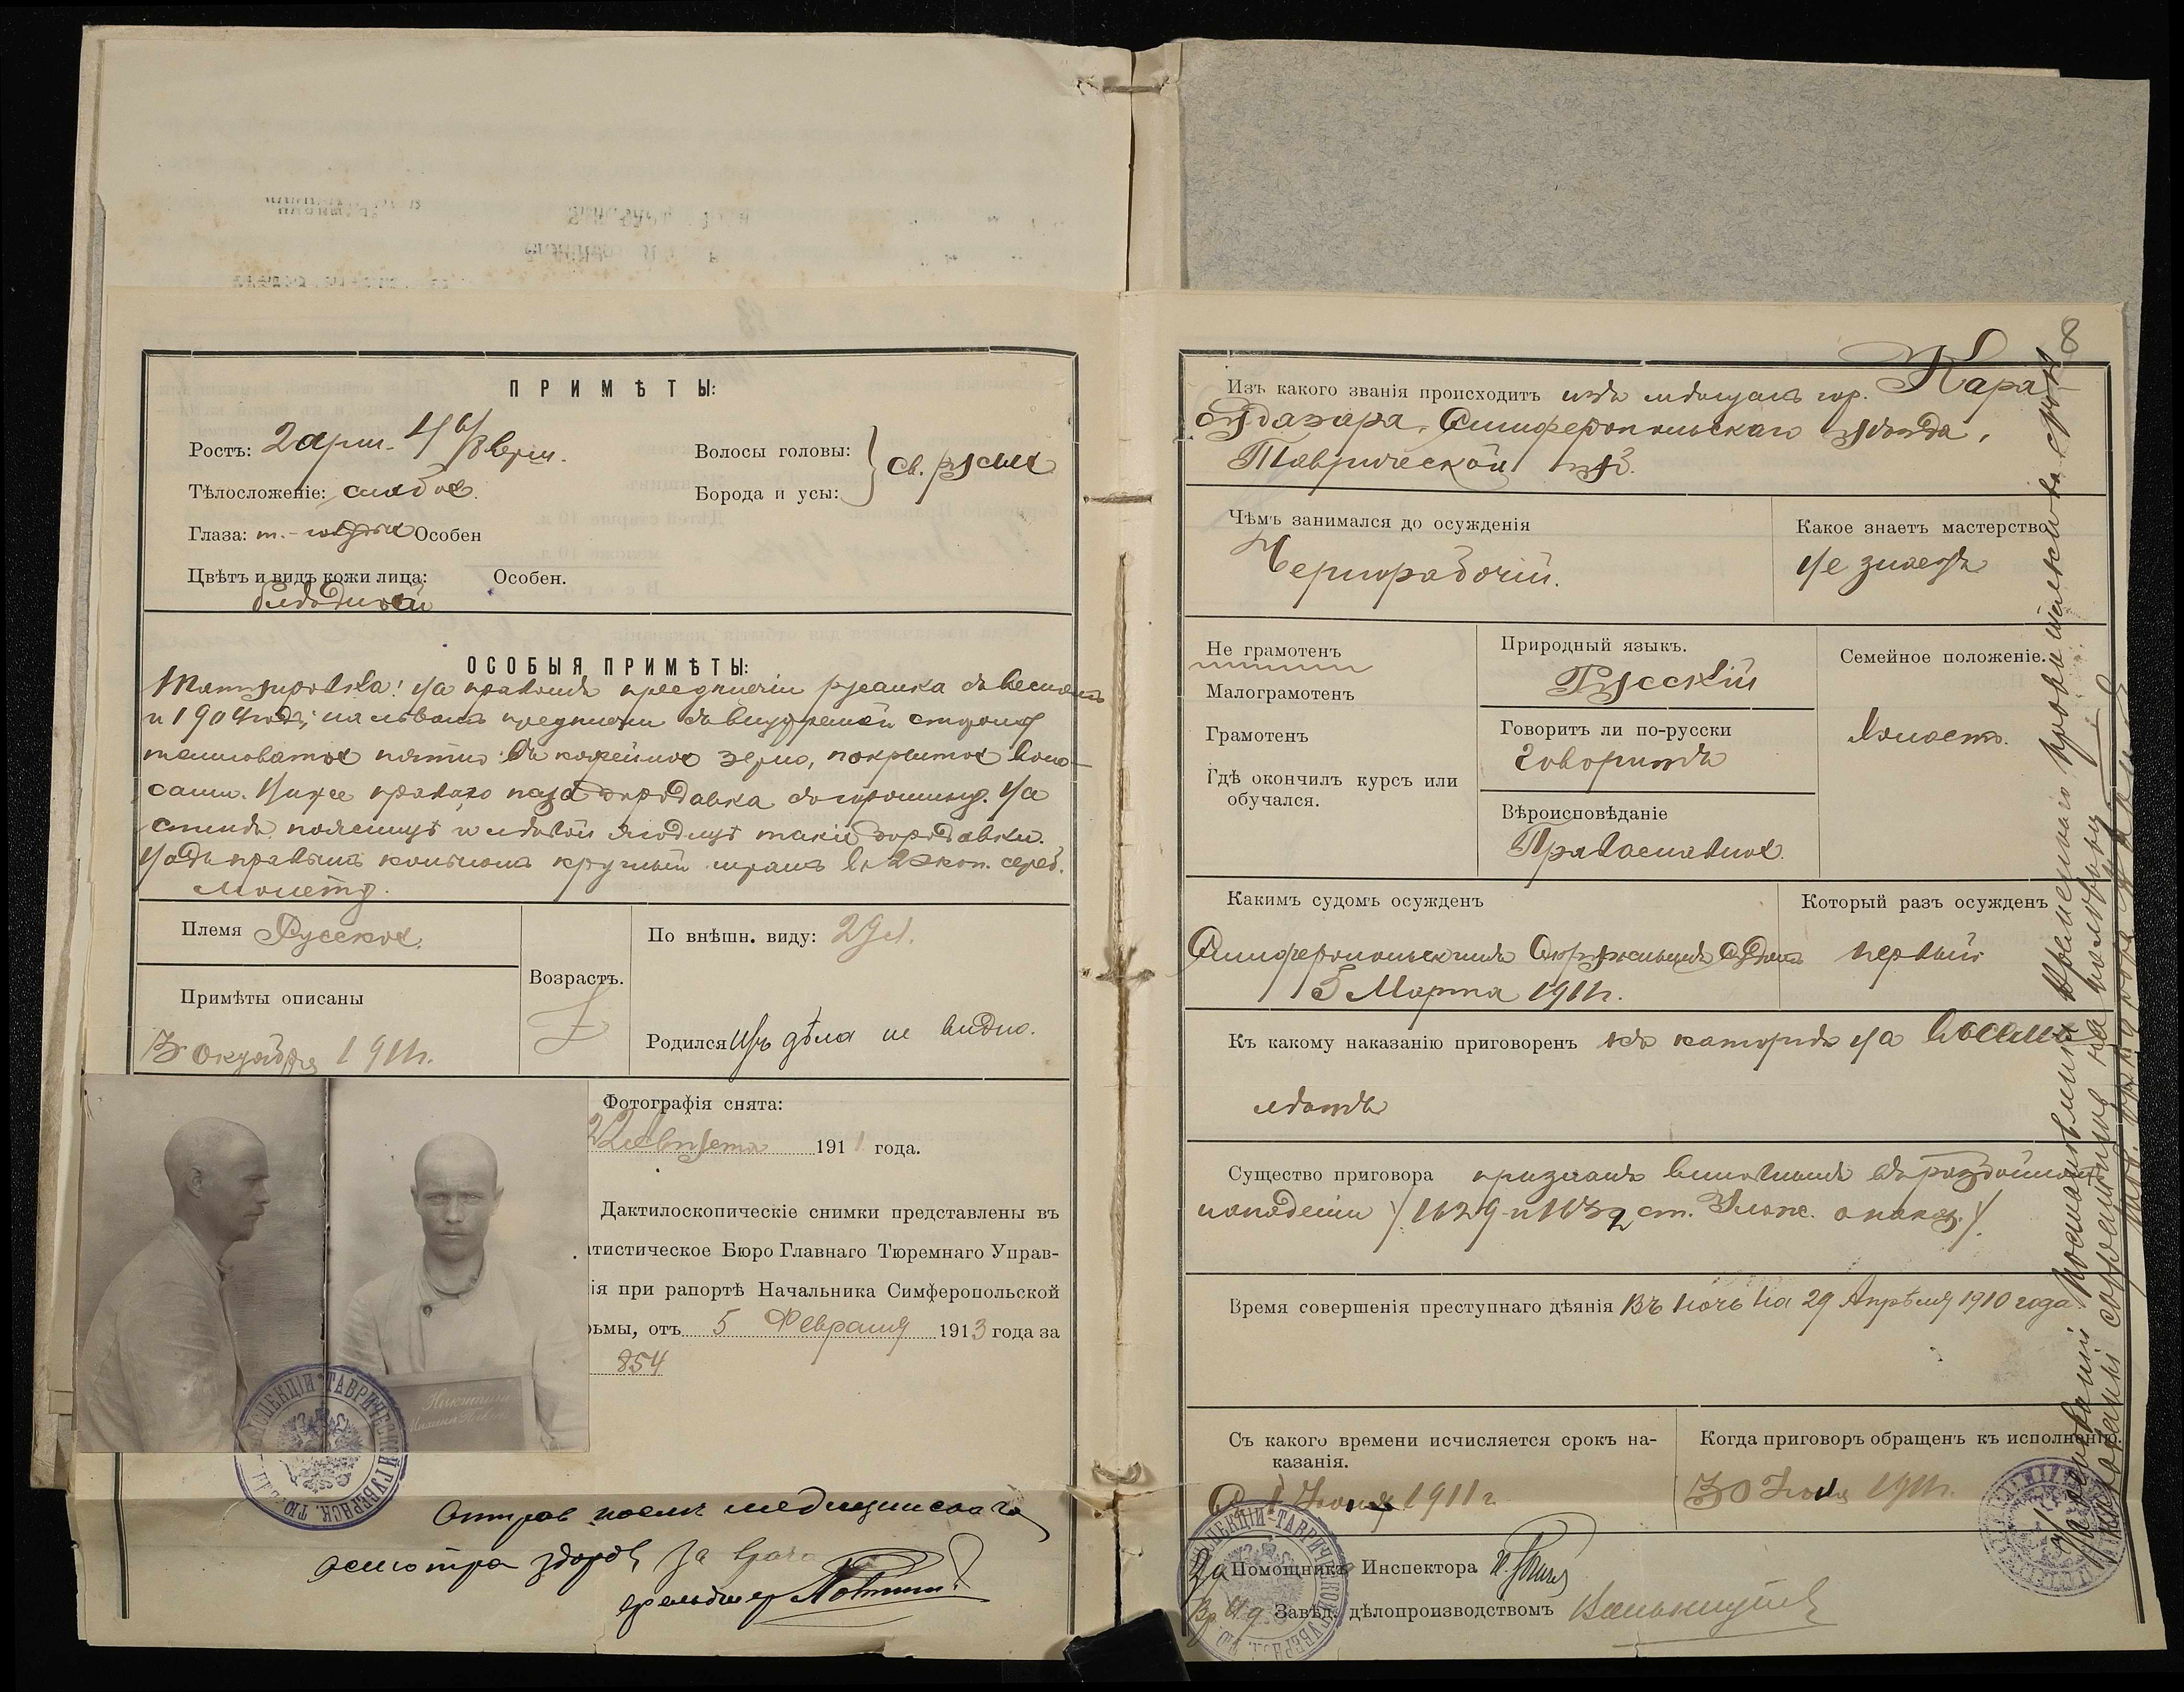 ПРИМѢТЫ:
Ростъ: 2 арш. 4 6/8 верш.
Волосы головы:
Борода и усы:
св. русые
Тѣлосложеніе: слабое.
Глаза: т.-голубые Особен
Цвѣтъ и видъ кожи лица: Особен.
блѣдный
ОСОБЫЯ ПРИМѢТЫ:
Татуировка: на правомъ предплечіи русалка съ
и 1904 года; на лѣвомъ предплечіи съ внутренней стороны
пятно въ кофейное зерно, покрытое воло-
сами. Ниже праваго паха бородавка съ горошину. На
спинѣ, поясницѣ и лѣвой ягодицѣ такія бородавки.
Надъ правымъ колѣномъ круглый шрамъ въ коп. сереб.
монету.
Племя Русское.
Возрастъ.
По внѣшн. виду: 29 л.
Примѣты описаны
3 октября 1911 г.
Родился Изъ дѣла не видно.
Фотографія снята:
Августа 1911 года.
Дактилоскопическіе снимки представлены въ
тистическое Бюро Главнаго Тюремнаго Управ-
ія при рапортѣ Начальника Симферопольской
ьмы, отъ 5 Февраля 1913 года за
854
Никитинъ
Отправ послѣ медицинскаго
осмотра здоровъ За врача
фельдшеръ
8
Изъ какого званія происходитъ изъ мѣщанъ гор. Кара
субазара, Симферопольскаго уѣзда,
Таврической губ.
Чѣмъ занимался до осужденія
Чернорабочій.
Какое знаетъ мастерство
не знаетъ
Не грамотенъ
Малограмотенъ
Грамотенъ
Гдѣ окончилъ курсъ или
обучался.
Природный языкъ.
Русскій
Говоритъ ли по-русски
говоритъ
Вѣроисповѣданіе
Православное.
Семейное положеніе.
Холостъ.
Какимъ судомъ осужденъ
Симферопольскимъ Окружнымъ Судомъ
Марта 1911 г.
Который разъ осужденъ
первый
Къ какому наказанію приговоренъ къ каторгѣ на восемь
лѣтъ
Существо приговора признанъ виновнымъ въ разбойномъ
нападеніи /1629 и 1632 ст. Улож. о наказ./.
Время совершенія преступнаго дѣянія Въ ночь на 29 Апрѣля 1910 года
Съ какого времени исчисляется срокъ на-
казанія.
1911 г.
Когда приговоръ обращенъ къ исполненію.
30 1911 г.
За Помощникъ Инспектора
Вр. И д Завѣд. дѣлопроизводствомъ
На основаніи Постановленія Временнаго Правительства
каторги сокращенъ на половину